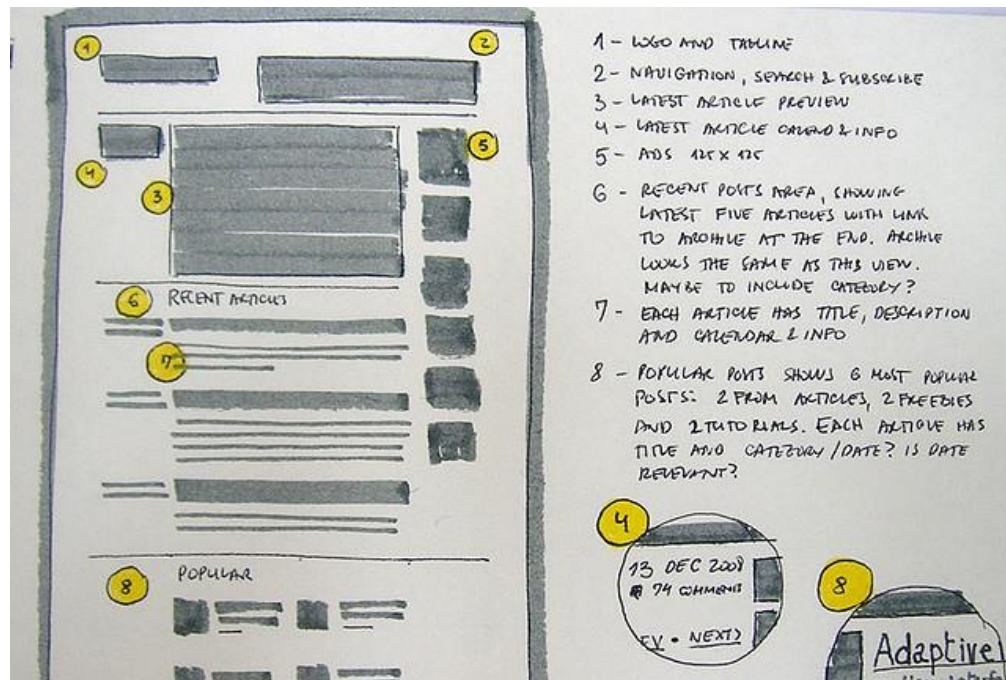 1
2
5
4
3
6 RECENT ARTICLES
7
8 POPULAR
1 - LOGO AND TAGLINE
2 - NAVIGATION, SEARCH & SUBSCRIBE
3 - LATEST ARTICLE PREVIEW
4 - LATEST ARTICLE CALEND & INFO
5 - ADS 125 x 125
6 - RECENT POSTS AREA, SHOWING
LATEST FIVE ARTICLES WITH LINK
TO ARCHIVE AT THE END. ARCHIVE
LOOKS THE SAME AS THIS VIEW.
MAYBE TO INCLUDE CATEGORY?
7 - EACH ARTICLE HAS TITLE, DESCRIPTION
AND CALENDAR & INFO
8 - POPULAR POSTS SHOWS 6 MOST POPULAR
POSTS: 2 FROM ARTICLES, 2 FREEBIES
AND 2 TUTORIALS. EACH ARTICLE HAS
TITLE AND CATEGORY/DATE? IS DATE
RELEVANT?
4
13 DEC 2008
74 COMMENTS
EV • NEXT>
8
Adaptive